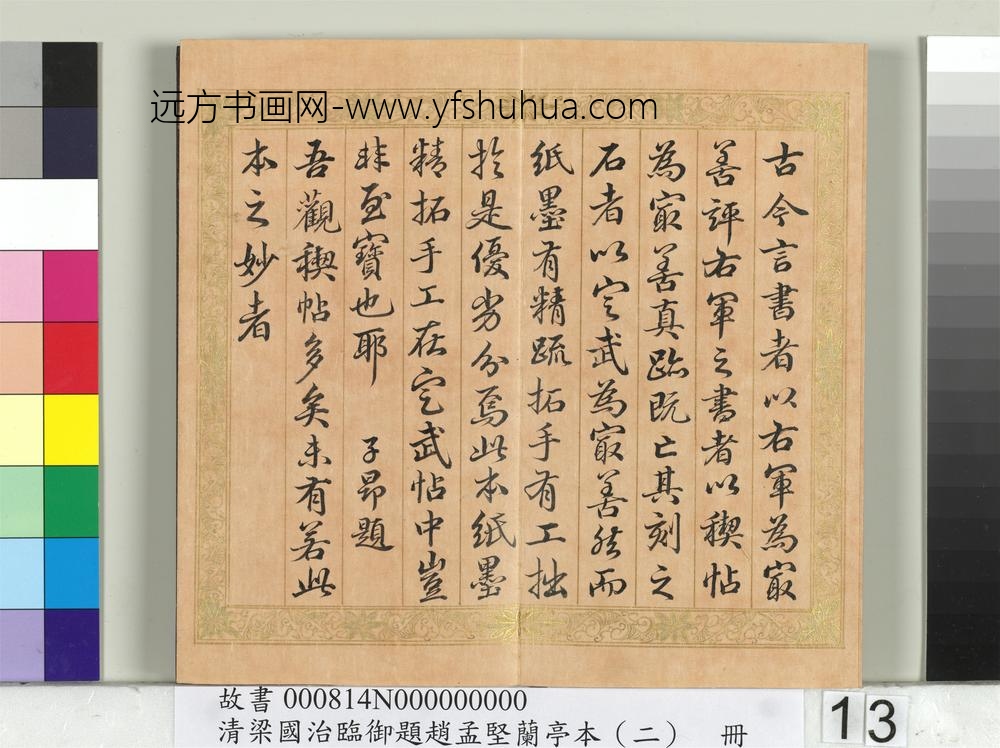 远方书画网-www.yfshuhua.com
古今言書者以右軍為㝡
善評右軍之書者以稧帖
為㝡善真跡既亡其刻之
石者以定武為㝡善然而
紙墨有精疏拓手有工拙
於是優劣分焉此本紙墨
精拓手工在定武帖中豈
非至寶也耶 子昂題
吾觀稧帖多矣未有若此
本之妙者
故書 000814N000000000
清梁國治臨御題趙孟堅蘭亭本（二） 冊
13